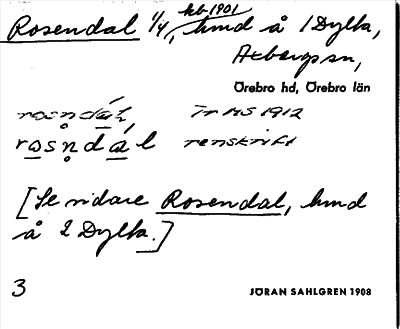 Rosendal 1/4, kb 1901 hmd å 1 Dylta,
Axbergs sn,
Örebro hd, Örebro län
rosn̥dál, ÏrHS 1912
rosn̥dál renskrift
[Se vidare Rosendal, hmd
å 2 Dylta.]
3
JÖRAN SAHLGREN 1908